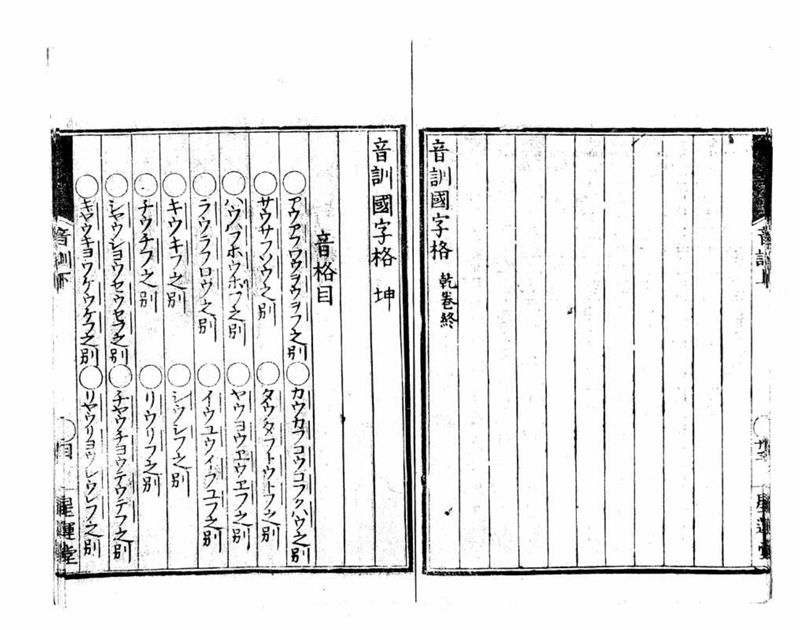 音訓國字格 乾巻終
音訓國字格 坤
音格目
○アウアフワウヲウヲフ之別
○カウカフコウコフクハウ之別
○サウサフソウ之別
○タウタフトウトフ之別
○ハウハフホウホフ之別
○ヤウヨウヱウエフ之別
○ラウラフロウ之別
○イウユウイフユフ之別
○キウキフ之別
○シウシフ之別
○チウチフ之別
○リウリフ之別
○シヤウシヨウセウセフ之別
○チヤウチヨウテウテフ之別
○キヤウキヨウケウケフ之別
○リヤウリヨウレウレフ之別
音訓下
目
星運堂